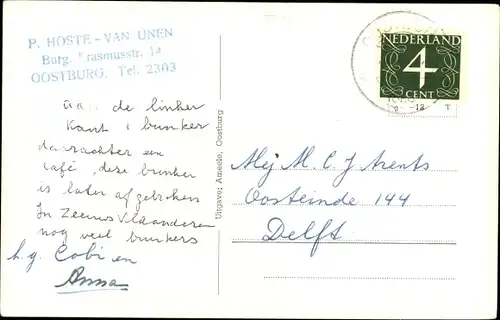 P. HOSTE - VAN UNEN
Burg. Erasmusstr. 1a
OOSTBURG. Tel. 2303
aan de linker
Kant 1 bunker
daarachter een
café, deze bunker
is later afgebroken
In Zeeuws Vlaanderen
nog veel bunkers
h.g. Cobi en
Anna
Uitgave: Ameele, Oostburg
NEDERLAND
4
CENT
Mej M. C. J Arents
Oosteinde 144
Delft